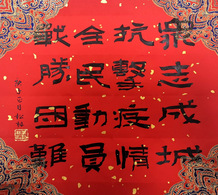 衆志成城
抗擊疫情
全民動員
戰勝困難